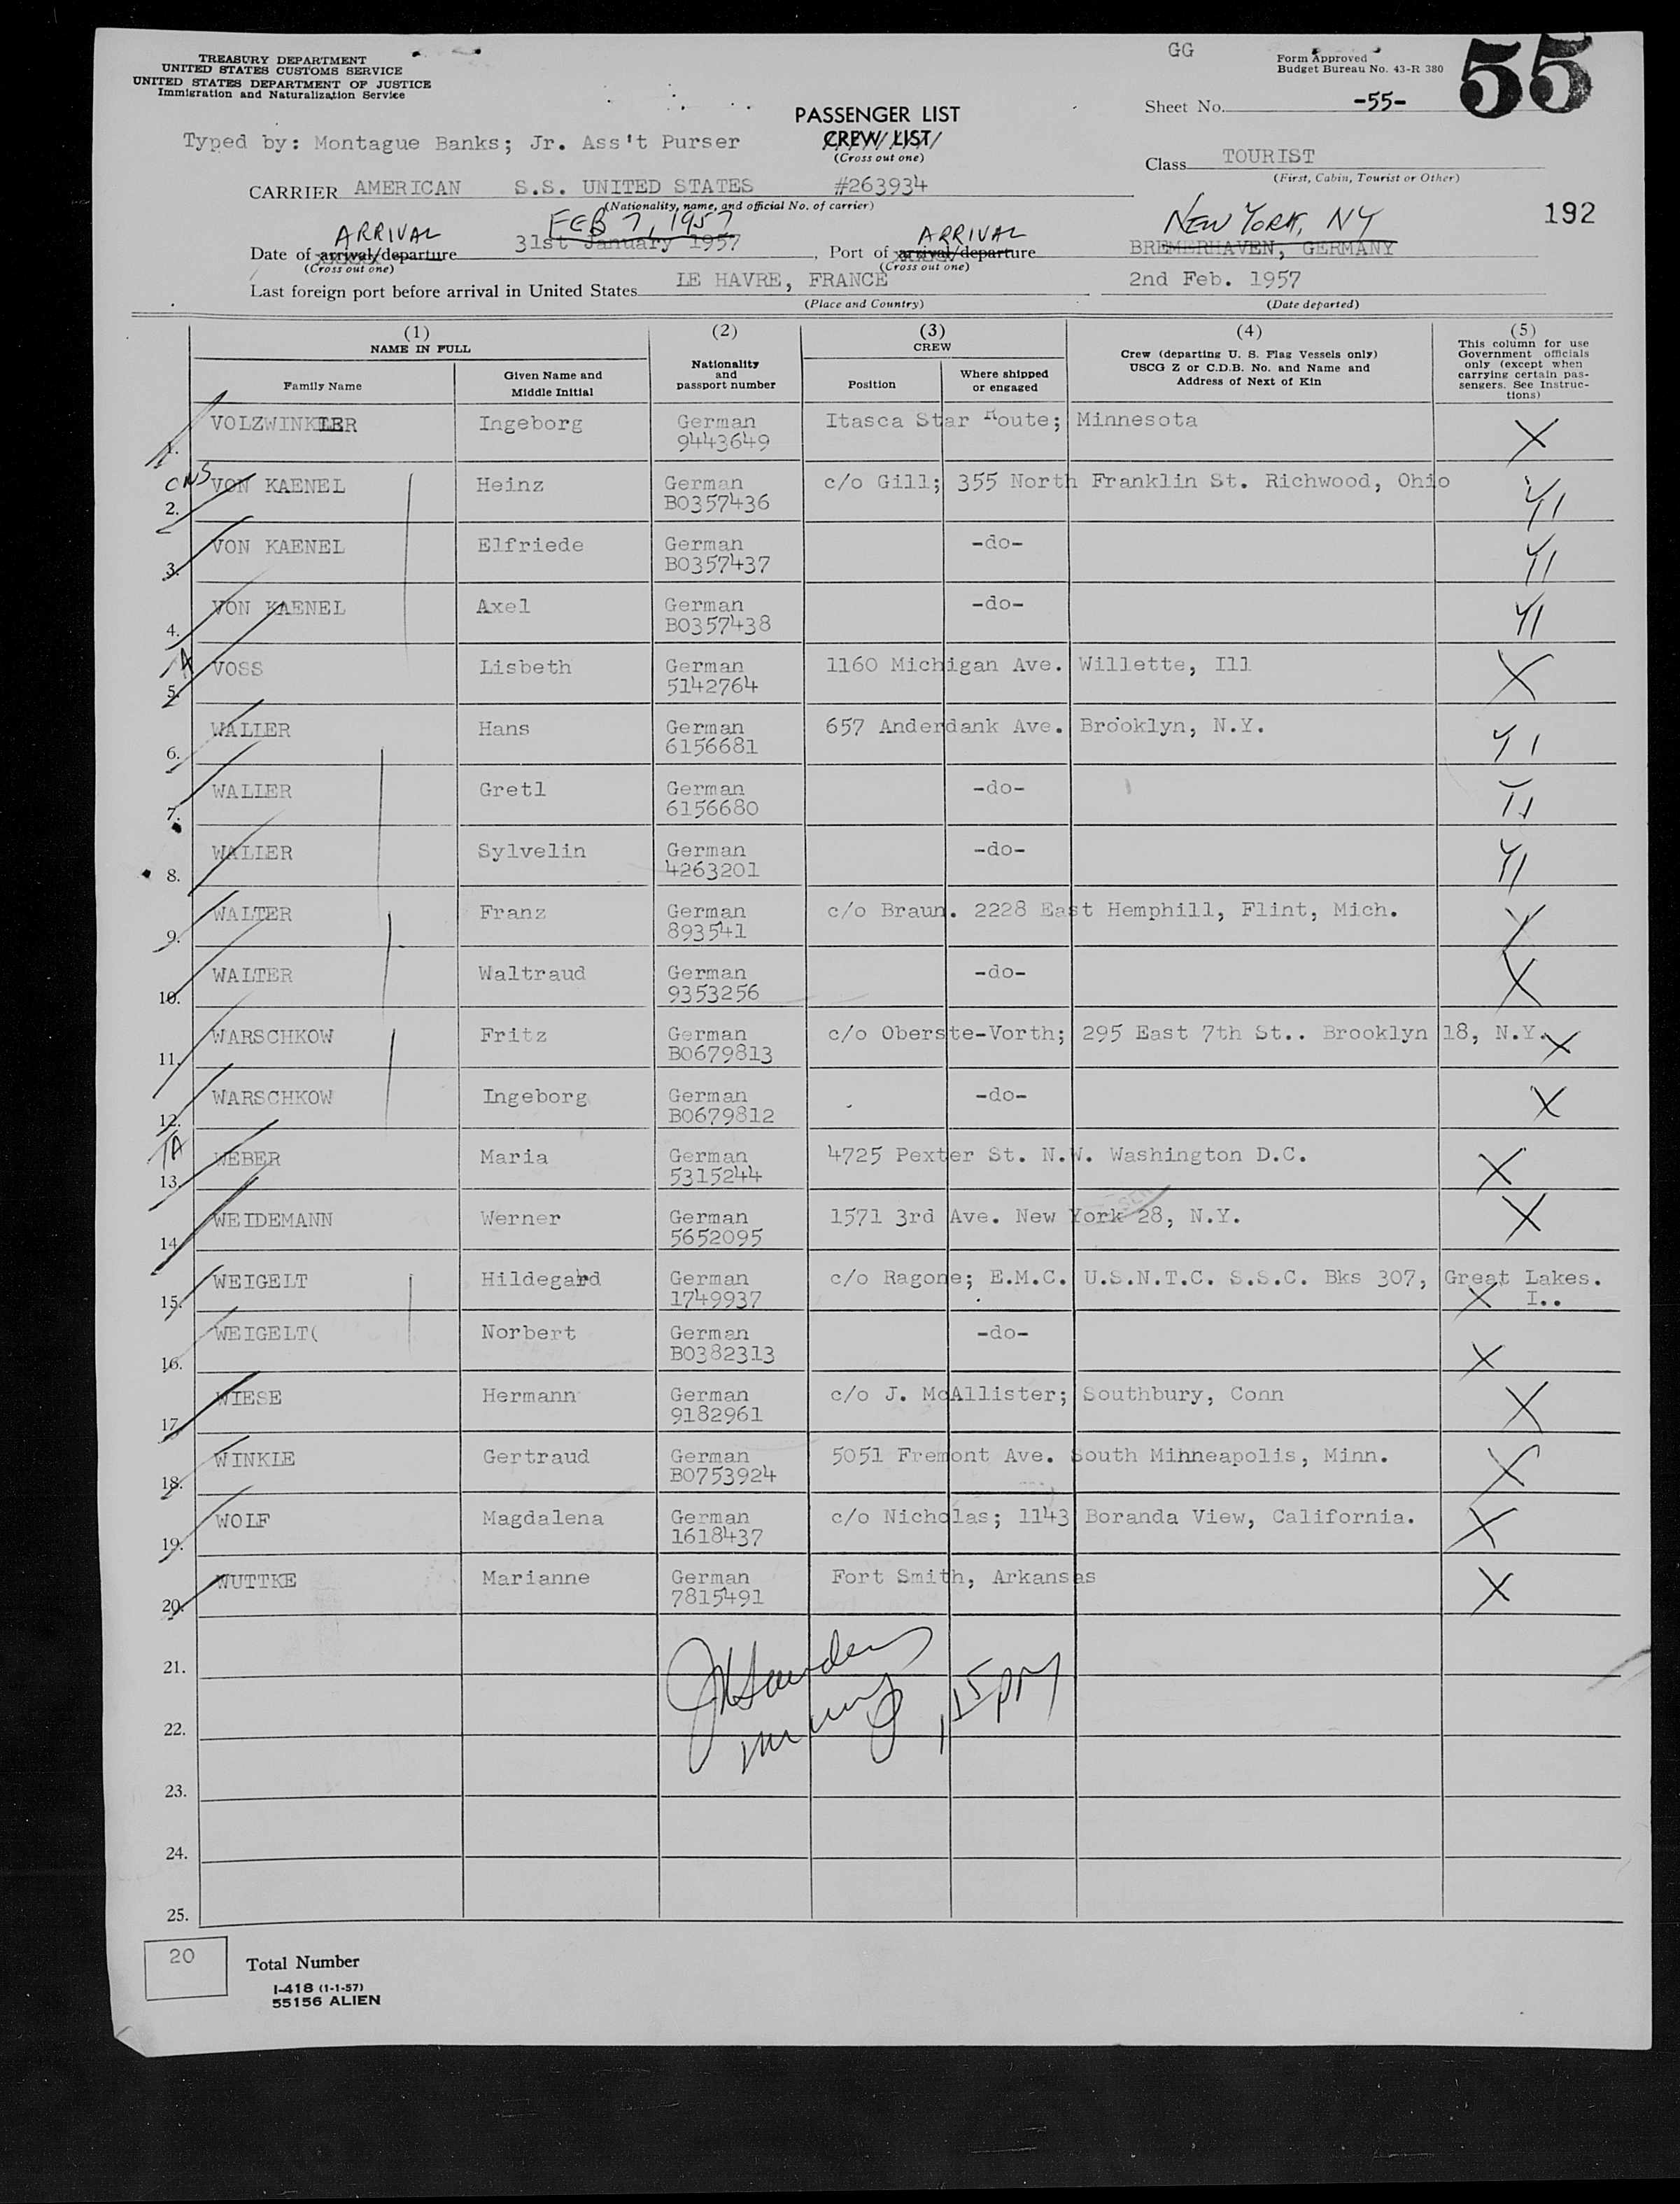 TREASURY DEPARTMENT
UNITED STATES CUSTOMS SERVICE
UNITED STATES DEPARTMENT OF JUSTICE
Immigration and Naturalization Service
GG
Form Approved
Budget Bureau No. 43-R 380
55
Sheet No. -55-
PASSENGER LIST
CREW LIST
(Cross out one)
Typed by: Montague Banks; Jr. Ass't Purser
Class TOURIST
(First, Cabin, Tourist or Other)
CARRIER AMERICAN S.S. UNITED STATES #263934
(Nationality, name, and official No. of carrier)
192
ARRIVAL FEB 7, 1957 ARRIVAL NEW YORK, NY
Date of arrival/departure 31st January 1957, Port of arrival/departure BREMERHAVEN, GERMANY
(Cross out one) (Cross out one)
Last foreign port before arrival in United States LE HAVRE, FRANCE 2nd Feb. 1957
(Place and Country) (Date departed)
(1) (2) (3) (4) (5)
NAME IN FULL
Family Name
Given Name and Middle Initial
Nationality and passport number
CREW
Position
Where shipped or engaged
Crew (departing U. S. Flag Vessels only)
USCG Z or C.D.B. No. and Name and
Address of Next of Kin
This column for use
Government officials
only (except when
carrying certain pas-
sengers. See Instruc-
tions)
1. VOLZWINKLER Ingeborg German Itasca Star Route; Minnesota X
9443649
CNS
2. VON KAENEL Heinz German c/o Gill; 355 North Franklin St. Richwood, Ohio
B0357436
3. VON KAENEL Elfriede German -do-
B0357437
4. VON KAENEL Axel German -do-
B0357438
5. VOSS Lisbeth German 1160 Michigan Ave. Willette, Ill X
5142764
6. WALLER Hans German 657 Anderdank Ave. Brooklyn, N.Y.
6156681
7. WALLER Gretl German -do-
6156680
8. WALLER Sylvelin German -do-
4263201
9. WALTER Franz German c/o Braun. 2228 East Hemphill, Flint, Mich. X
893541
10. WALTER Waltraud German -do- X
9353256
11. WARSCHKOW Fritz German c/o Oberste-Vorth; 295 East 7th St.. Brooklyn 18, N.Y. X
B0679813
12. WARSCHKOW Ingeborg German -do- X
B0679812
13. WEBER Maria German 4725 Pexter St. N.W. Washington D.C. X
5315244
14. WEIDEMANN Werner German 1571 3rd Ave. New York 28, N.Y. X
5652095
15. WEIGELT Hildegard German c/o Ragone; E.M.C. U.S.N.T.C. S.S.C. Bks 307, Great Lakes.
1749937 X I..
16. WEIGELT( Norbert German -do- X
B0382313
17. WIESE Hermann German c/o J. McAllister; Southbury, Conn X
9182961
18. WINKLE Gertraud German 5051 Fremont Ave. South Minneapolis, Minn. X
B0753924
19. WOLF Magdalena German c/o Nicholas; 1143 Boranda View, California. X
1618437
20. WUTTKE Marianne German Fort Smith, Arkansas X
7815491
21.
22.
1 15 pm
23.
24.
25.
20 Total Number
I-418 (1-1-57)
55156 ALIEN